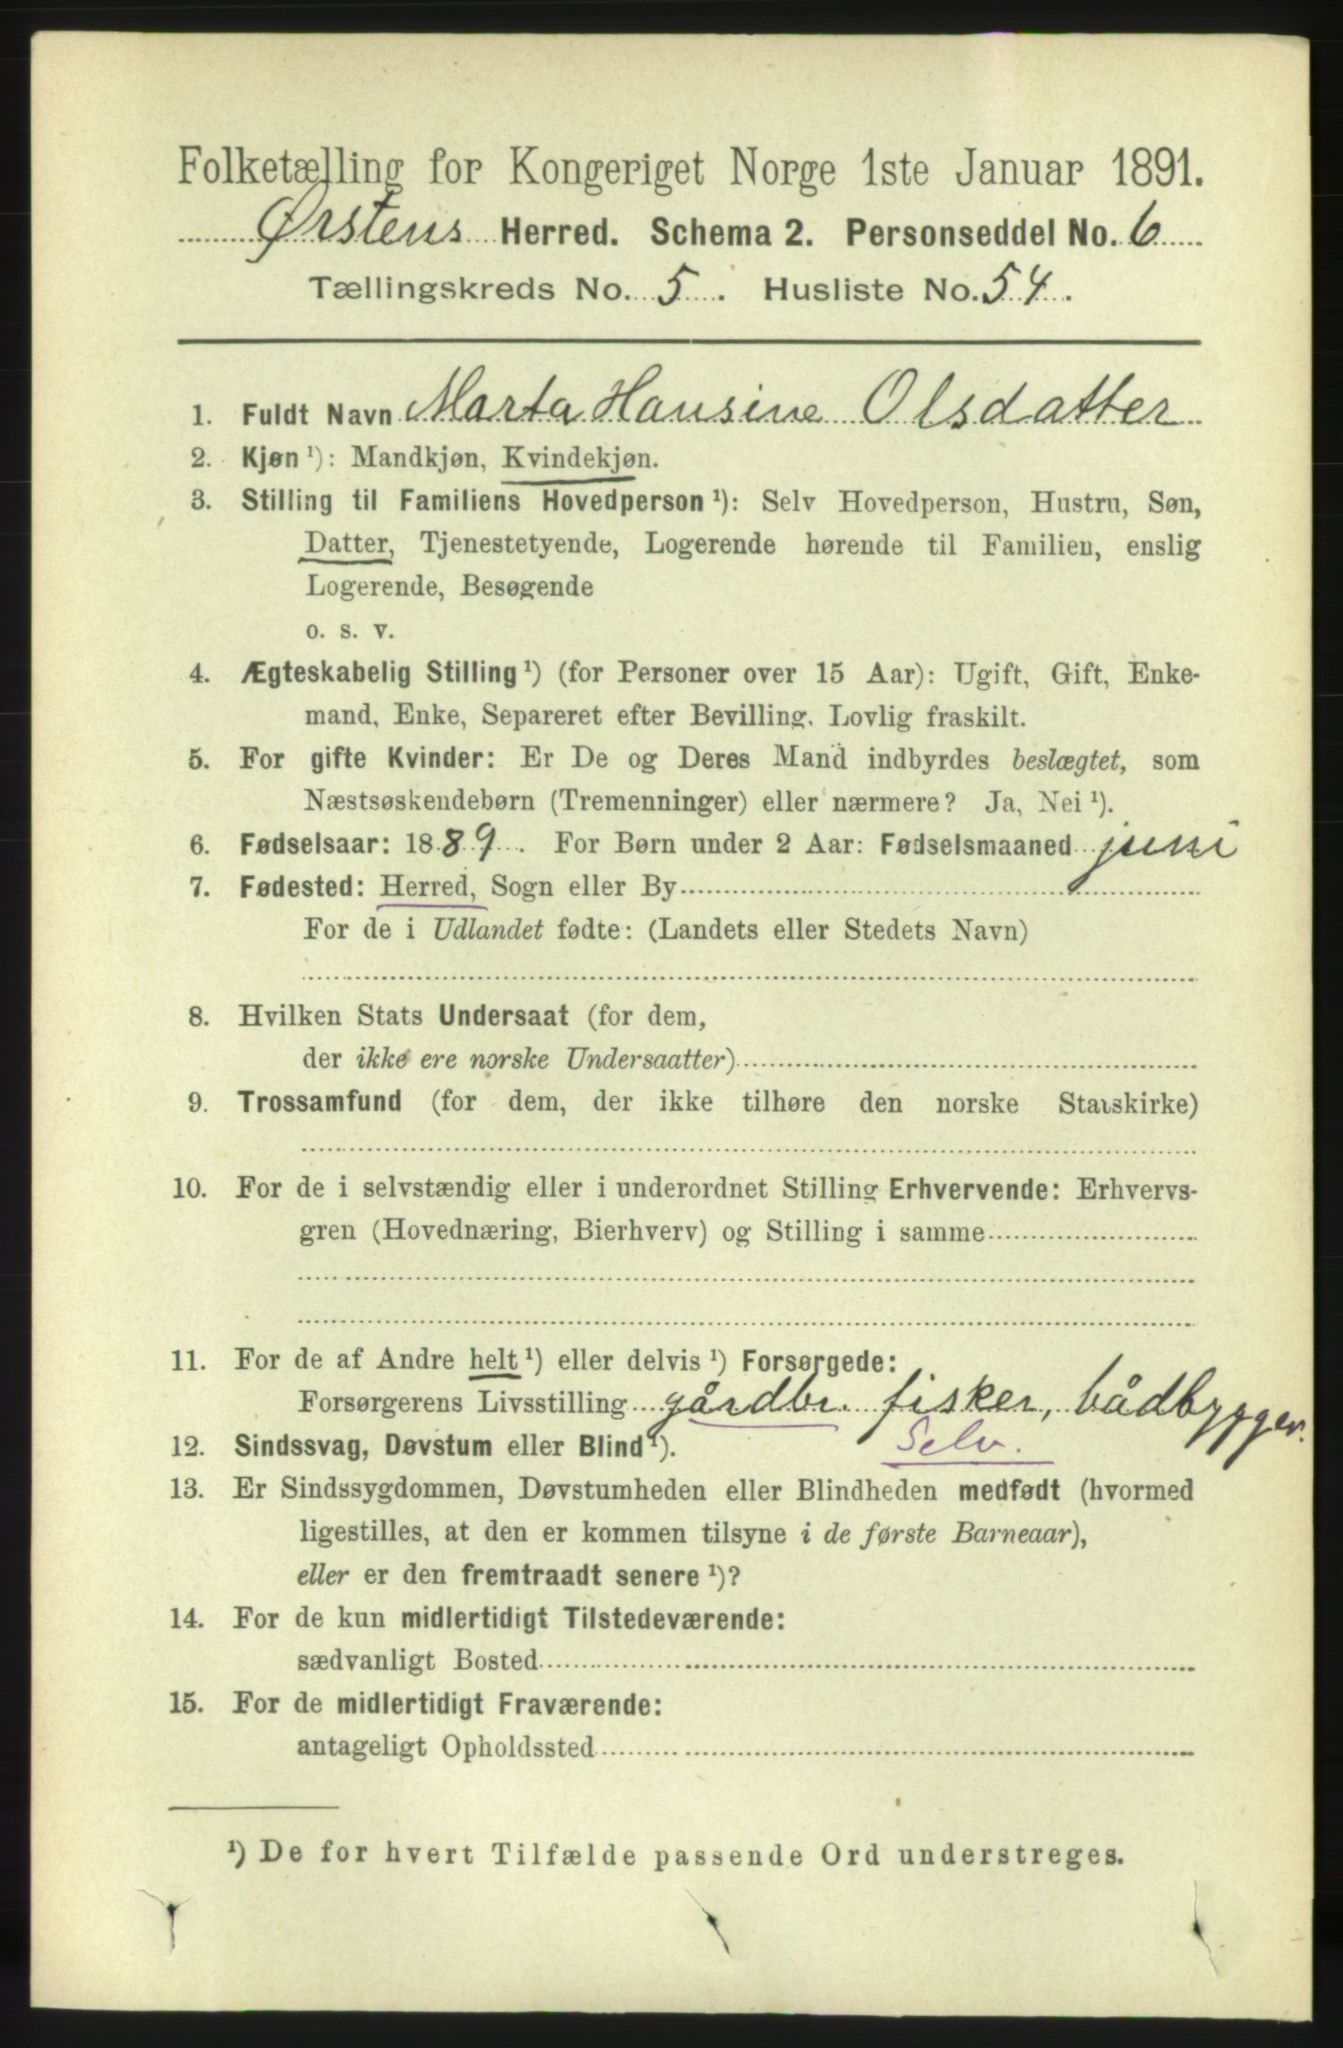 Folketælling for Kongeriget Norge 1ste Januar 1891.
Ørstens Herred. Schema 2. Personseddel No. 6
Tællingskreds No. 5. Husliste No. 54.
1. Fuldt Navn Marta Hansine Olsdatter
2. Kjøn ¹): Mandkjøn, Kvindekjøn.
3. Stilling til Familiens Hovedperson ¹): Selv Hovedperson, Hustru, Søn,
Datter, Tjenestetyende, Logerende hørende til Familien, enslig
Logerende, Besøgende
o. s. v.
4. Ægteskabelig Stilling ¹) (for Personer over 15 Aar): Ugift, Gift, Enke-
mand, Enke, Separeret efter Bevilling. Lovlig fraskilt.
5. For gifte Kvinder: Er De og Deres Mand indbyrdes beslægtet, som
Næstsøskendebørn (Tremenninger) eller nærmere? Ja, Nei ¹).
6. Fødselsaar: 1889. For Børn under 2 Aar: Fødselsmaaned juni
7. Fødested: Herred, Sogn eller By
For de i Udlandet fødte: (Landets eller Stedets Navn)
8. Hvilken Stats Undersaat (for dem,
der ikke ere norske Undersaatter)
9. Trossamfund (for dem, der ikke tilhøre den norske Statskirke)
10. For de i selvstændig eller i underordnet Stilling Erhvervende: Erhvervs-
gren (Hovednæring, Bierhverv) og Stilling i samme
11. For de af Andre helt ¹) eller delvis ¹) Forsørgede:
Forsørgerens Livsstilling gårdbr. fisker, bådbygger.
Selv.
12. Sindssvag, Døvstum eller Blind ¹).
13. Er Sindssygdommen, Døvstumheden eller Blindheden medfødt (hvormed
ligestilles, at den er kommen tilsyne i de første Barneaar),
eller er den fremtraadt senere ¹)?
14. For de kun midlertidigt Tilstedeværende:
sædvanligt Bosted
15. For de midlertidigt Fraværende:
antageligt Opholdssted
¹) De for hvert Tilfælde passende Ord understreges.